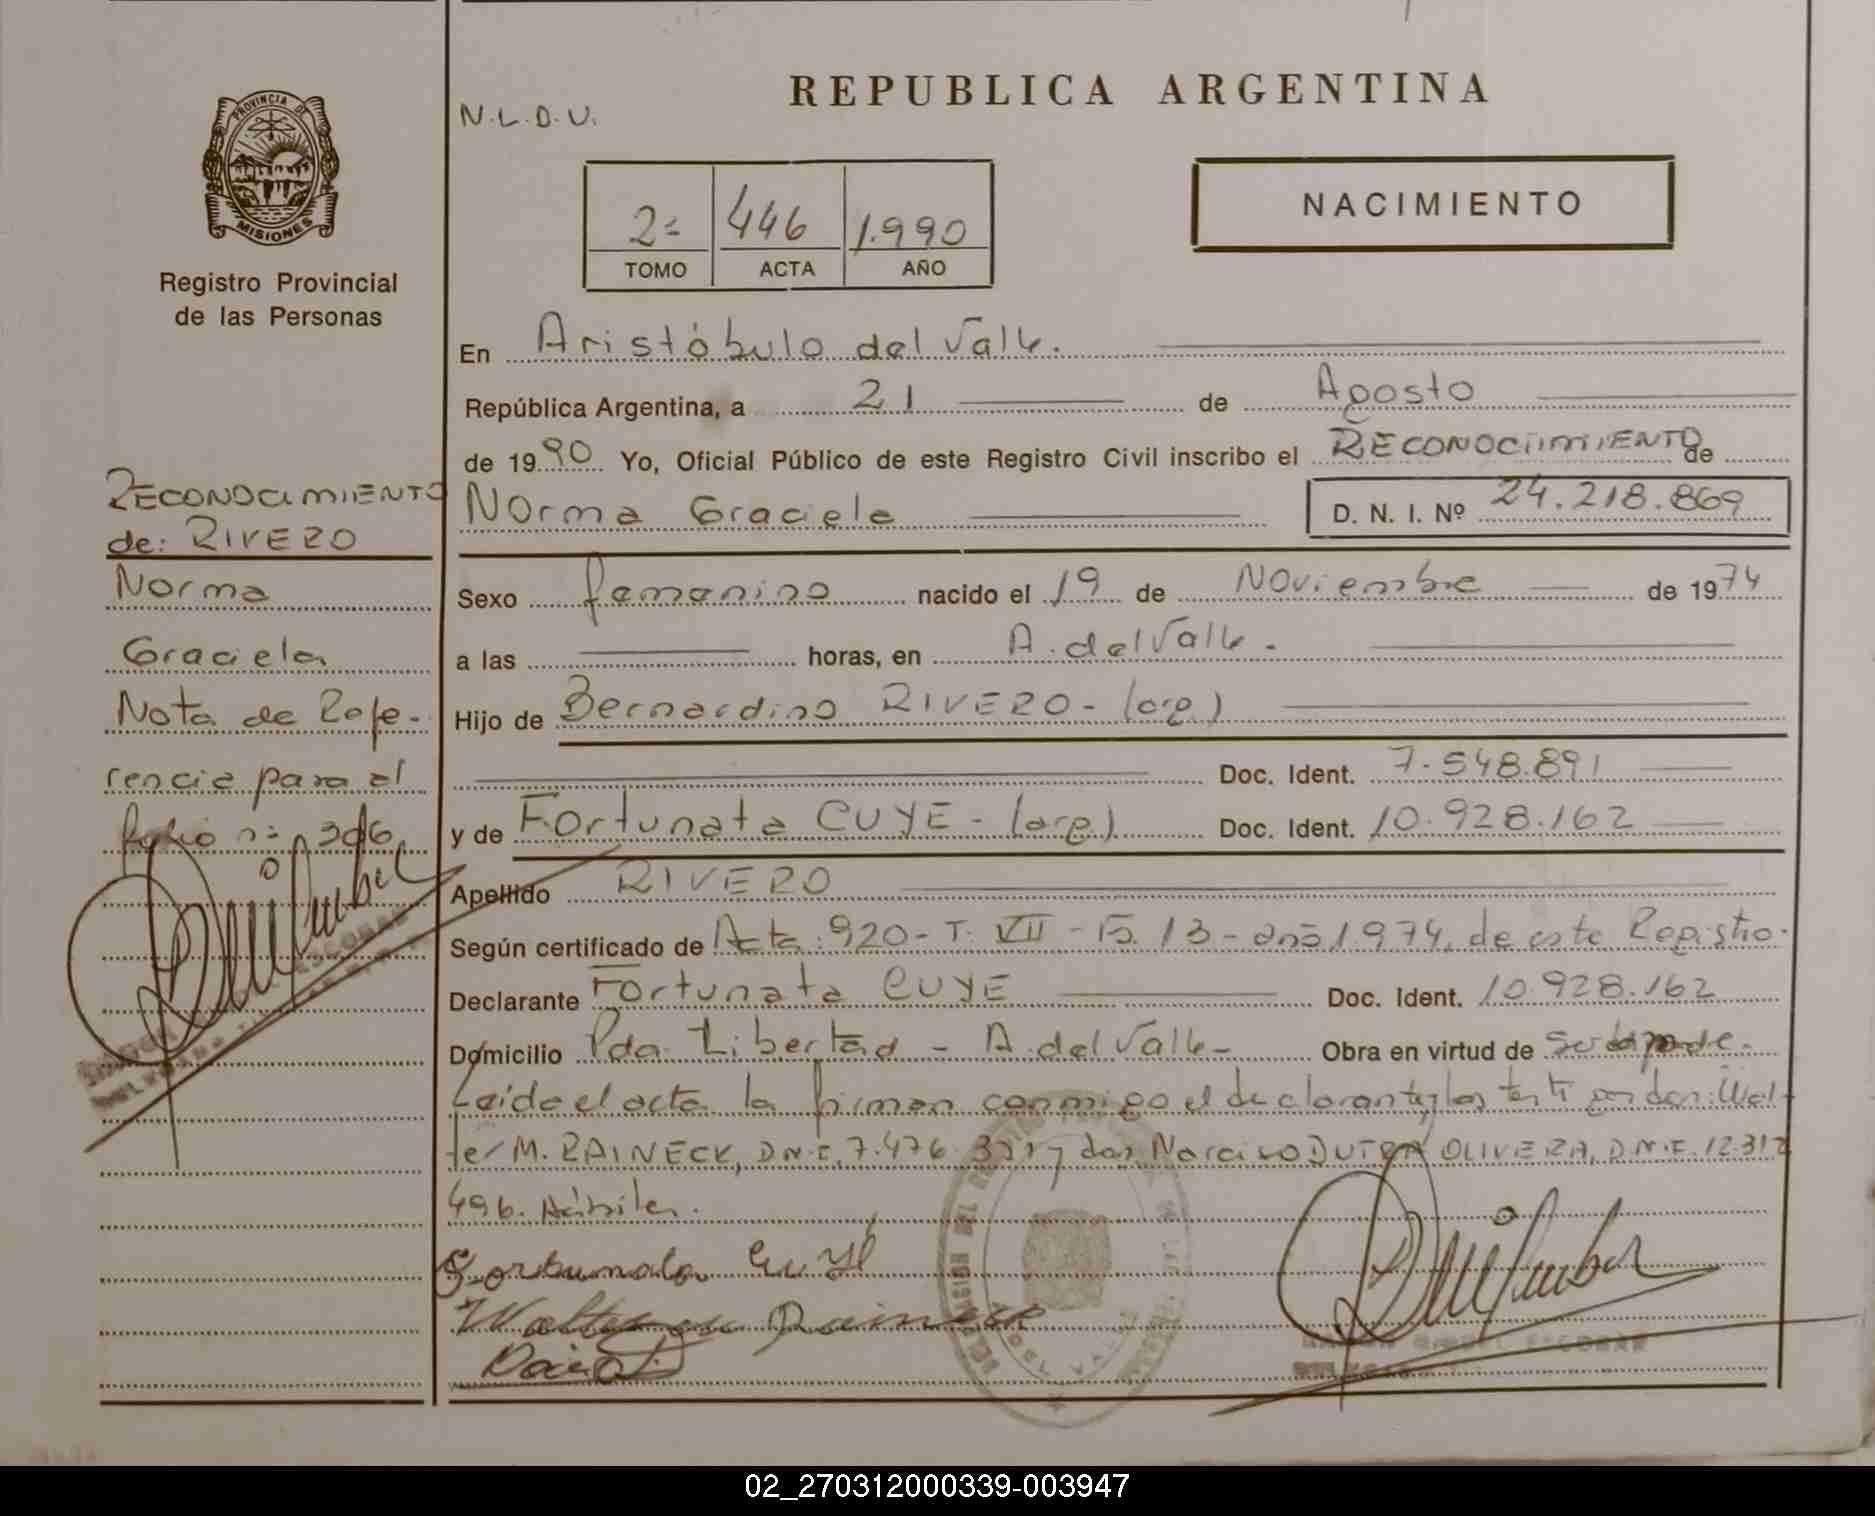 REPUBLICA ARGENTINA
N.L.D.U.
PROVINCIA DE
MISIONES
Registro Provincial
de las Personas
2º 446 1.990
TOMO ACTA AÑO
NACIMIENTO
En Aristóbulo del Valle.
República Argentina, a 21 de Agosto
de 1990 Yo, Oficial Público de este Registro Civil inscribo el RECONOCIMIENTO de
Norma Graciela D. N. I. Nº 24.218.869
Sexo femenino nacido el 19 de Noviembre de 1974
a las horas, en A. del Valle.
Hijo de Bernardino RIVERO - (arg)
Doc. Ident. 7.548.891
y de Fortunata CUYE - (arg) Doc. Ident. 10.928.162
Apellido RIVERO
Según certificado de Acta: 920 - T. VII - Fº 13 - año 1974, de este Registro.
Declarante Fortunata CUYE Doc. Ident. 10.928.162
Domicilio Pda. Libertad - A. del Valle - Obra en virtud de Ser la madre.
Leída el acta la firman conmigo el declarante y los testigos don: Wal-
ter M. RAINECK, D.N.I. 7.476. y don Narciso DUTRA OLIVERA, D.N.I. 12.312
496. Hábiles.
Fortunata Cuye
RECONOCIMIENTO
de: RIVERO
Norma
Graciela
Nota de Refe-
rencia para el
folio nº 306
02_270312000339-003947